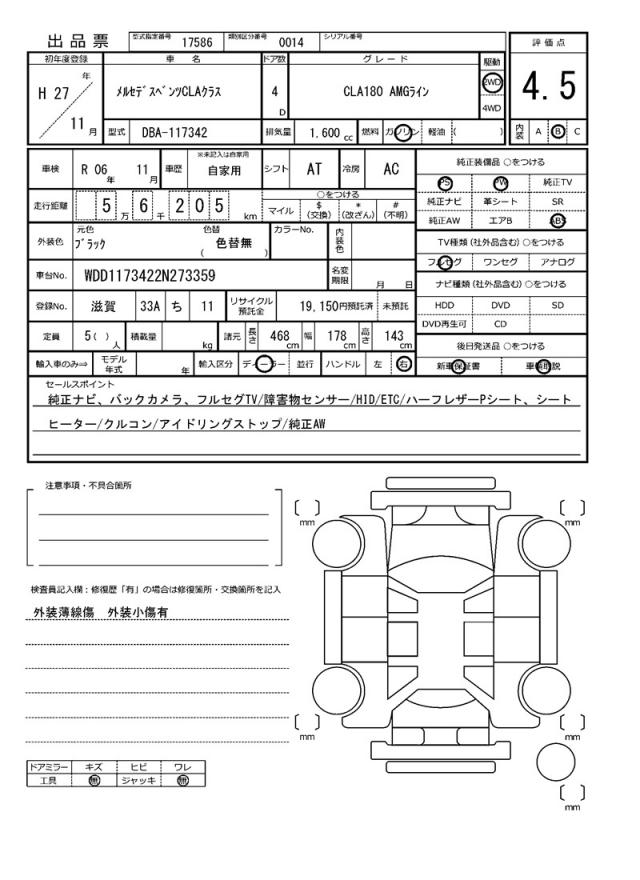 出品票 型式指定番号 17586 類別区分番号 0014 シリアル番号
初年度登録 車名 ドア数 グレード 駆動 評価点
H 27 年 11 月 メルセデスベンツCLAクラス 4 D CLA180 AMGライン 2WD 4WD 4.5
型式 DBA-117342 排気量 1,600 cc 燃料 ガソリン 軽油 ( ) 内装 A B C
車検 R 06 年 11 月 車歴 ※未記入は自家用 自家用 シフト AT 冷房 AC
走行距離 5 万 6 千 2 0 5 km ○をつける マイル $ (交換) * (改ざん) # (不明)
外装色 元色 ブラック 色替 色替無 ( ) カラーNo. 内装色
車台No. WDD1173422N273359 名変期限 月 日
登録No. 滋賀 33A ち 11 リサイクル預託金 19,150円預託済 未預託
定員 5( ) 人 積載量 kg 諸元 長さ 468 cm 幅 178 cm 高さ 143 cm
輸入車のみ⇒ モデル年式 年 輸入区分 ディーラー 並行 ハンドル 左 右
純正装備品 ○をつける
PS PW 純正TV
純正ナビ 革シート SR
純正AW エアB ABS
TV種類 (社外品含む) ○をつける
フルセグ ワンセグ アナログ
ナビ種類 (社外品含む) ○をつける
HDD DVD SD
DVD再生可 CD
後日発送品 ○をつける
新車保証書 車輌取説
セールスポイント
純正ナビ、バックカメラ、フルセグTV/障害物センサー/HID/ETC/ハーフレザーPシート、シート
ヒーター/クルコン/アイドリングストップ/純正AW
注意事項・不具合箇所
検査員記入欄：修復歴「有」の場合は修復箇所・交換箇所を記入
外装薄線傷 外装小傷有
ドアミラー キズ ヒビ ワレ
工具 無 ジャッキ 無
〔 〕mm 〔 〕mm
〔 〕mm 〔 〕mm
〔 〕mm